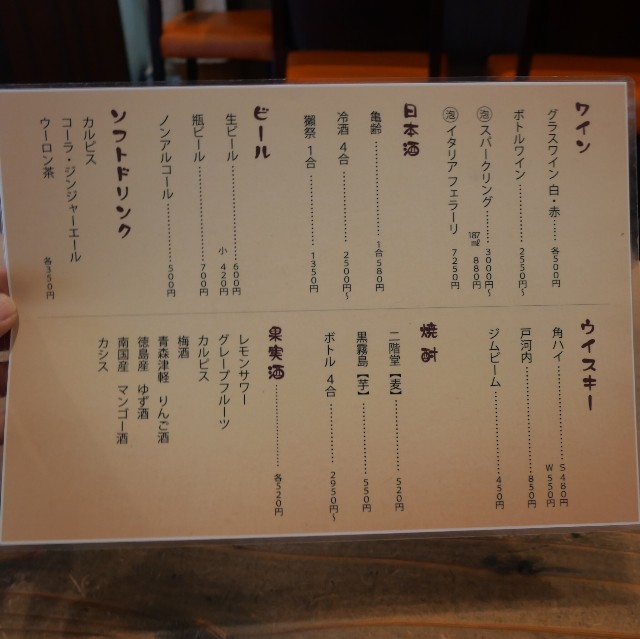 ワイン
グラスワイン 白・赤………各500円
ボトルワイン………………2550円～
㊟スパークリング………3000円～
187㎖ 880円
㊟イタリア フェラーリ 7250円
日本酒
亀齢………………………1合580円
冷酒 4合………………2500円～
獺祭 1合………………1350円
ビール
生ビール…………………600円
小 420円
瓶ビール…………………700円
ノンアルコール…………500円
ソフトドリンク
カルピス
コーラ・ジンジャーエール
ウーロン茶 各350円
ウイスキー
角ハイ……………………S 480円
W 550円
戸河内……………………850円
ジムビーム………………450円
焼酎
二階堂【麦】……………520円
黒霧島【芋】……………550円
ボトル 4合……………2950円～
果実酒……………………各520円
レモンサワー
グレープフルーツ
カルピス
梅酒
青森津軽 りんご酒
徳島産 ゆず酒
南国産 マンゴー酒
カシス